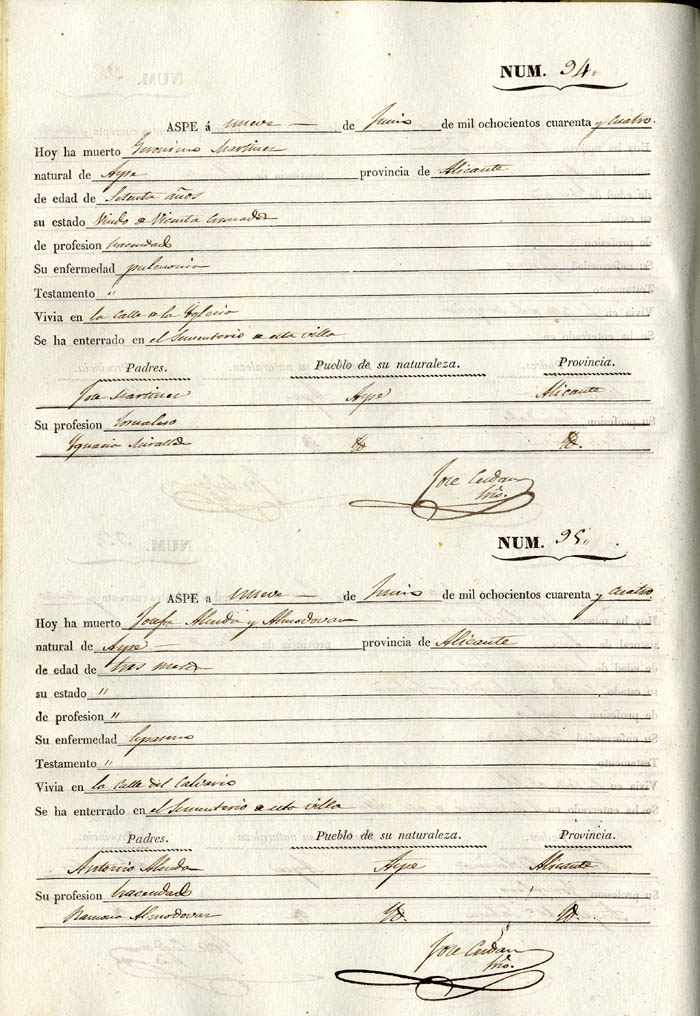 NUM. 94.
ASPE á nueve de Junio de mil ochocientos cuarenta y cuatro.
Hoy ha muerto Geronimo Martinez
natural de Aspe provincia de Alicante
de edad de Setenta años
su estado Viudo de Vicenta
de profesion hacendado
Su enfermedad pulmonia
Testamento "
Vivia en la Calle de la Yglecia
Se ha enterrado en el Sementerio de esta villa
Padres. Pueblo de su naturaleza. Provincia.
Jose Martinez Aspe Alicante
Su profesion Jornalero
Ygnacia Miralles Yd. Yd.
Jose Cerdan
NUM. 95.
ASPE a nueve de Junio de mil ochocientos cuarenta y cuatro
Hoy ha muerto Josefa y Almodovar
natural de Aspe provincia de Alicante
de edad de tres meses
su estado "
de profesion "
Su enfermedad Espasmo
Testamento "
Vivia en la Calle del Calvario
Se ha enterrado en el Sementerio de esta villa
Padres. Pueblo de su naturaleza. Provincia.
Antonio Aspe Alicante
Su profesion hacendado
Ramona Almodovar Yd. Yd.
Jose Cerdan